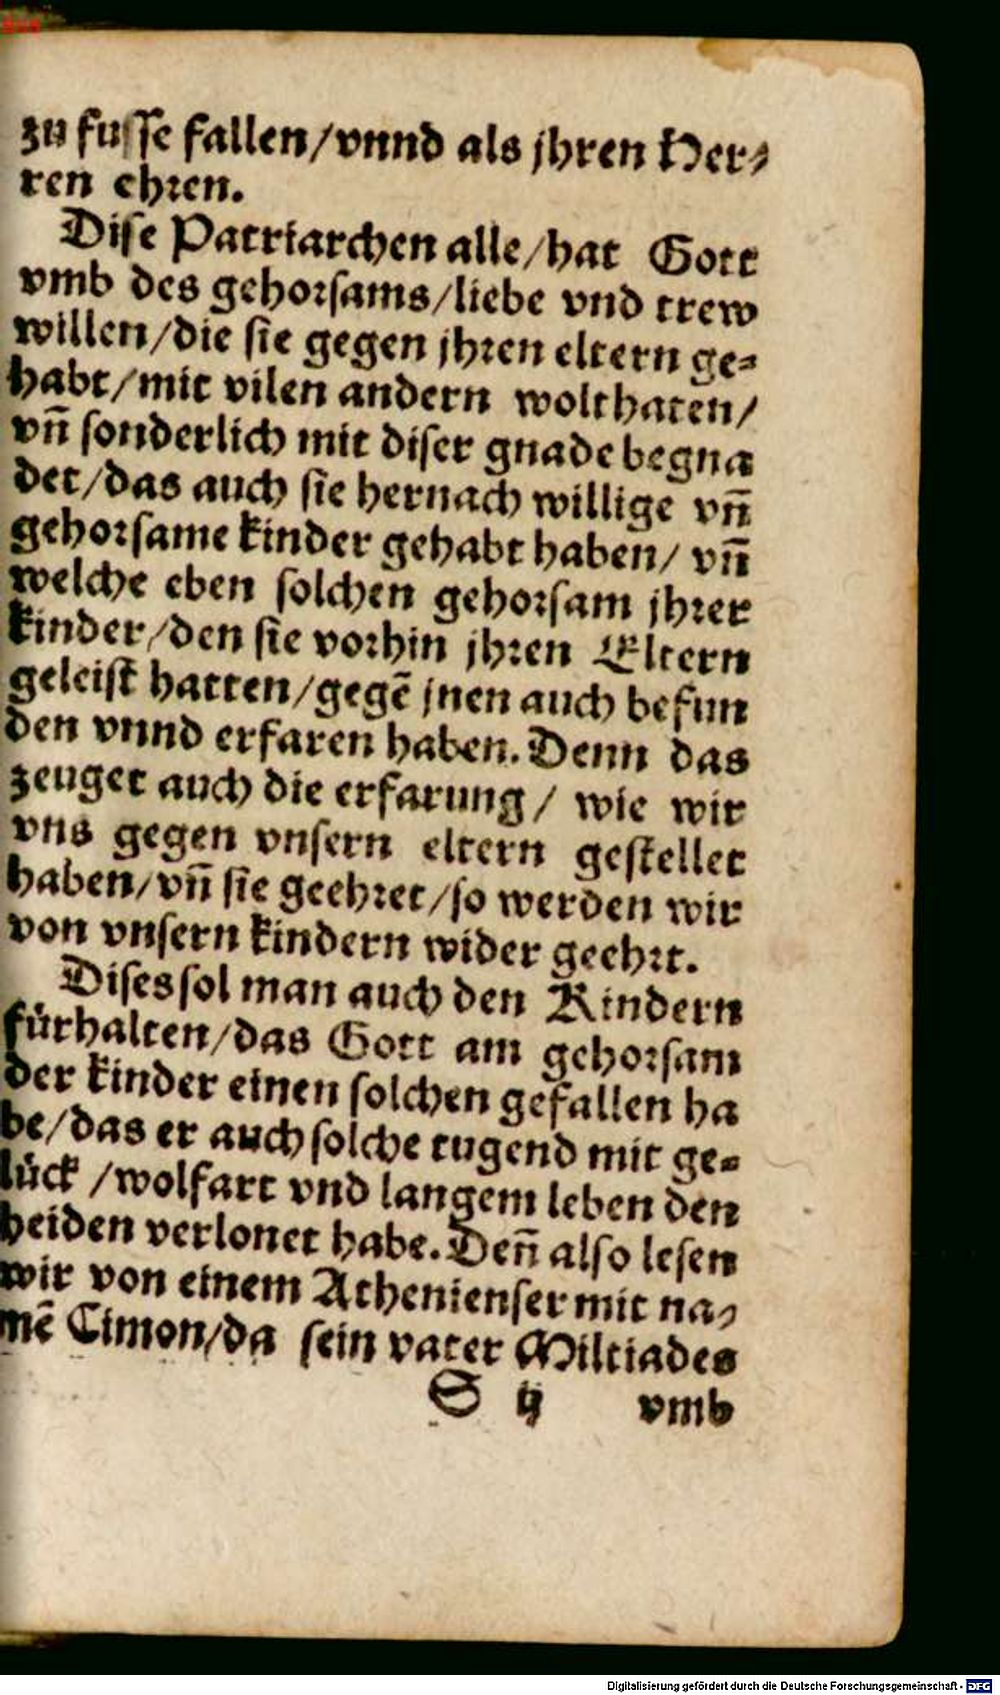 zu fusſe fallen/vnnd als jhren Her⸗
ren ehꝛen.
Diſe Patriarchen alle/hat Gott
vmb des gehoꝛſams/liebe vnd trew
willen/die ſie gegen jhꝛen eltern ge⸗
habt/mit vilen andern wolthaten/
vn̄ ſonderlich mit diſer gnade begna
det/das auch ſie hernach willige vn̄
gehoꝛſame kinder gehabt haben/ vn̄
welche eben ſolchen gehoꝛſam jhꝛer
kinder/den ſie voꝛhin jhꝛen Eltern
geleiſt hatten/gegē jnen auch befun
den vnnd erfaren haben. Denn das
zeuget auch die erfarung/ wie wir
vns gegen vnſern eltern geſtellet
haben/vn̄ ſie geehꝛet/ſo werden wir
von vnſern kindern wider geehꝛt.
Diſes ſol man auch den Kindern
fürhalten/das Gott am gehoꝛſam
der kinder einen ſolchen gefallen ha
be/das er auch ſolche tugend mit ge⸗
lück /wolfart vnd langem leben den
heiden verlonet habe. Den̄ alſo leſen
wir von einem Athenienſer mit na⸗
mē Cimon/da ſein vater Miltiades
S ij vmb
Digitalisierung gefördert durch die Deutsche Forschungsgemeinschaft - DFG